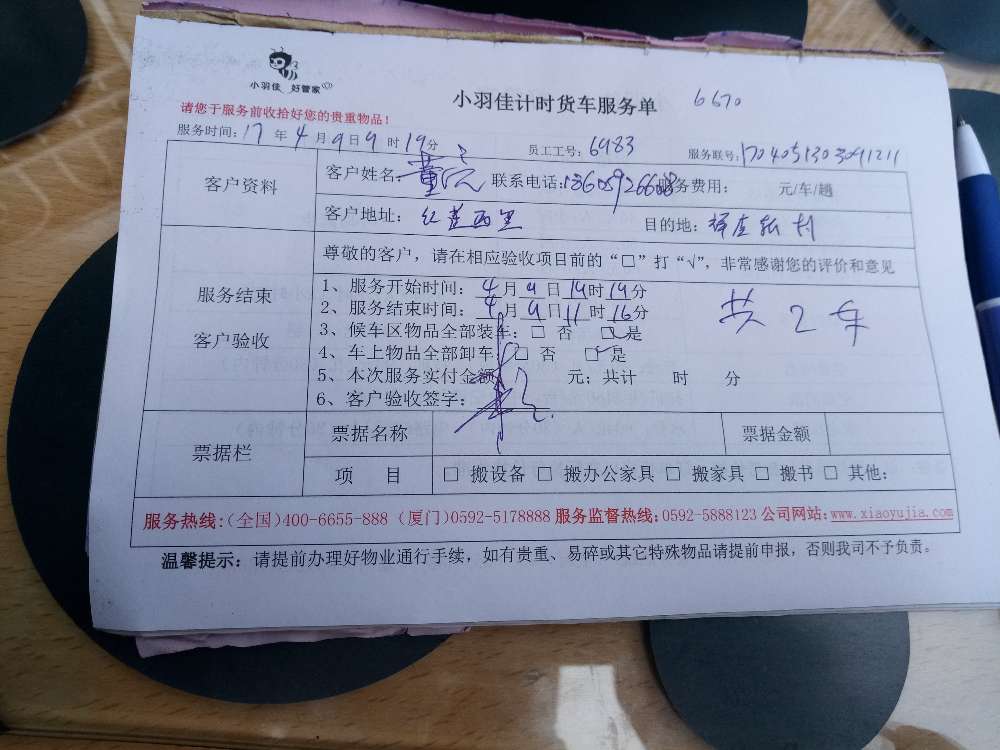 小羽佳 好管家
小羽佳计时货车服务单 6670
请您于服务前收拾好您的贵重物品！
服务时间：17年4月9日9时19分 员工工号：6983 服务联号：
客户资料 客户姓名：董 联系电话： 服务费用： 元/车/趟
客户地址：红莲西里 目的地：
尊敬的客户，请在相应验收项目前的“□”打“√”，非常感谢您的评价和意见
服务结束 客户验收
1、服务开始时间：4月9日19时19分
2、服务结束时间：4月9日11时16分
3、候车区物品全部装车：□ 否 ☑是
4、车上物品全部卸车：□ 否 ☑是
5、本次服务实付金额 元；共计 时 分
6、客户验收签字：
共2车
票据栏 票据名称 票据金额
项 目 □ 搬设备 □ 搬办公家具 □ 搬家具 □ 搬书 □ 其他：
服务热线：（全国）400-6655-888（厦门）0592-5178888 服务监督热线：0592-5888123 公司网站：www.xiaoyujia.com
温馨提示：请提前办理好物业通行手续，如有贵重、易碎或其它特殊物品请提前申报，否则我司不予负责。